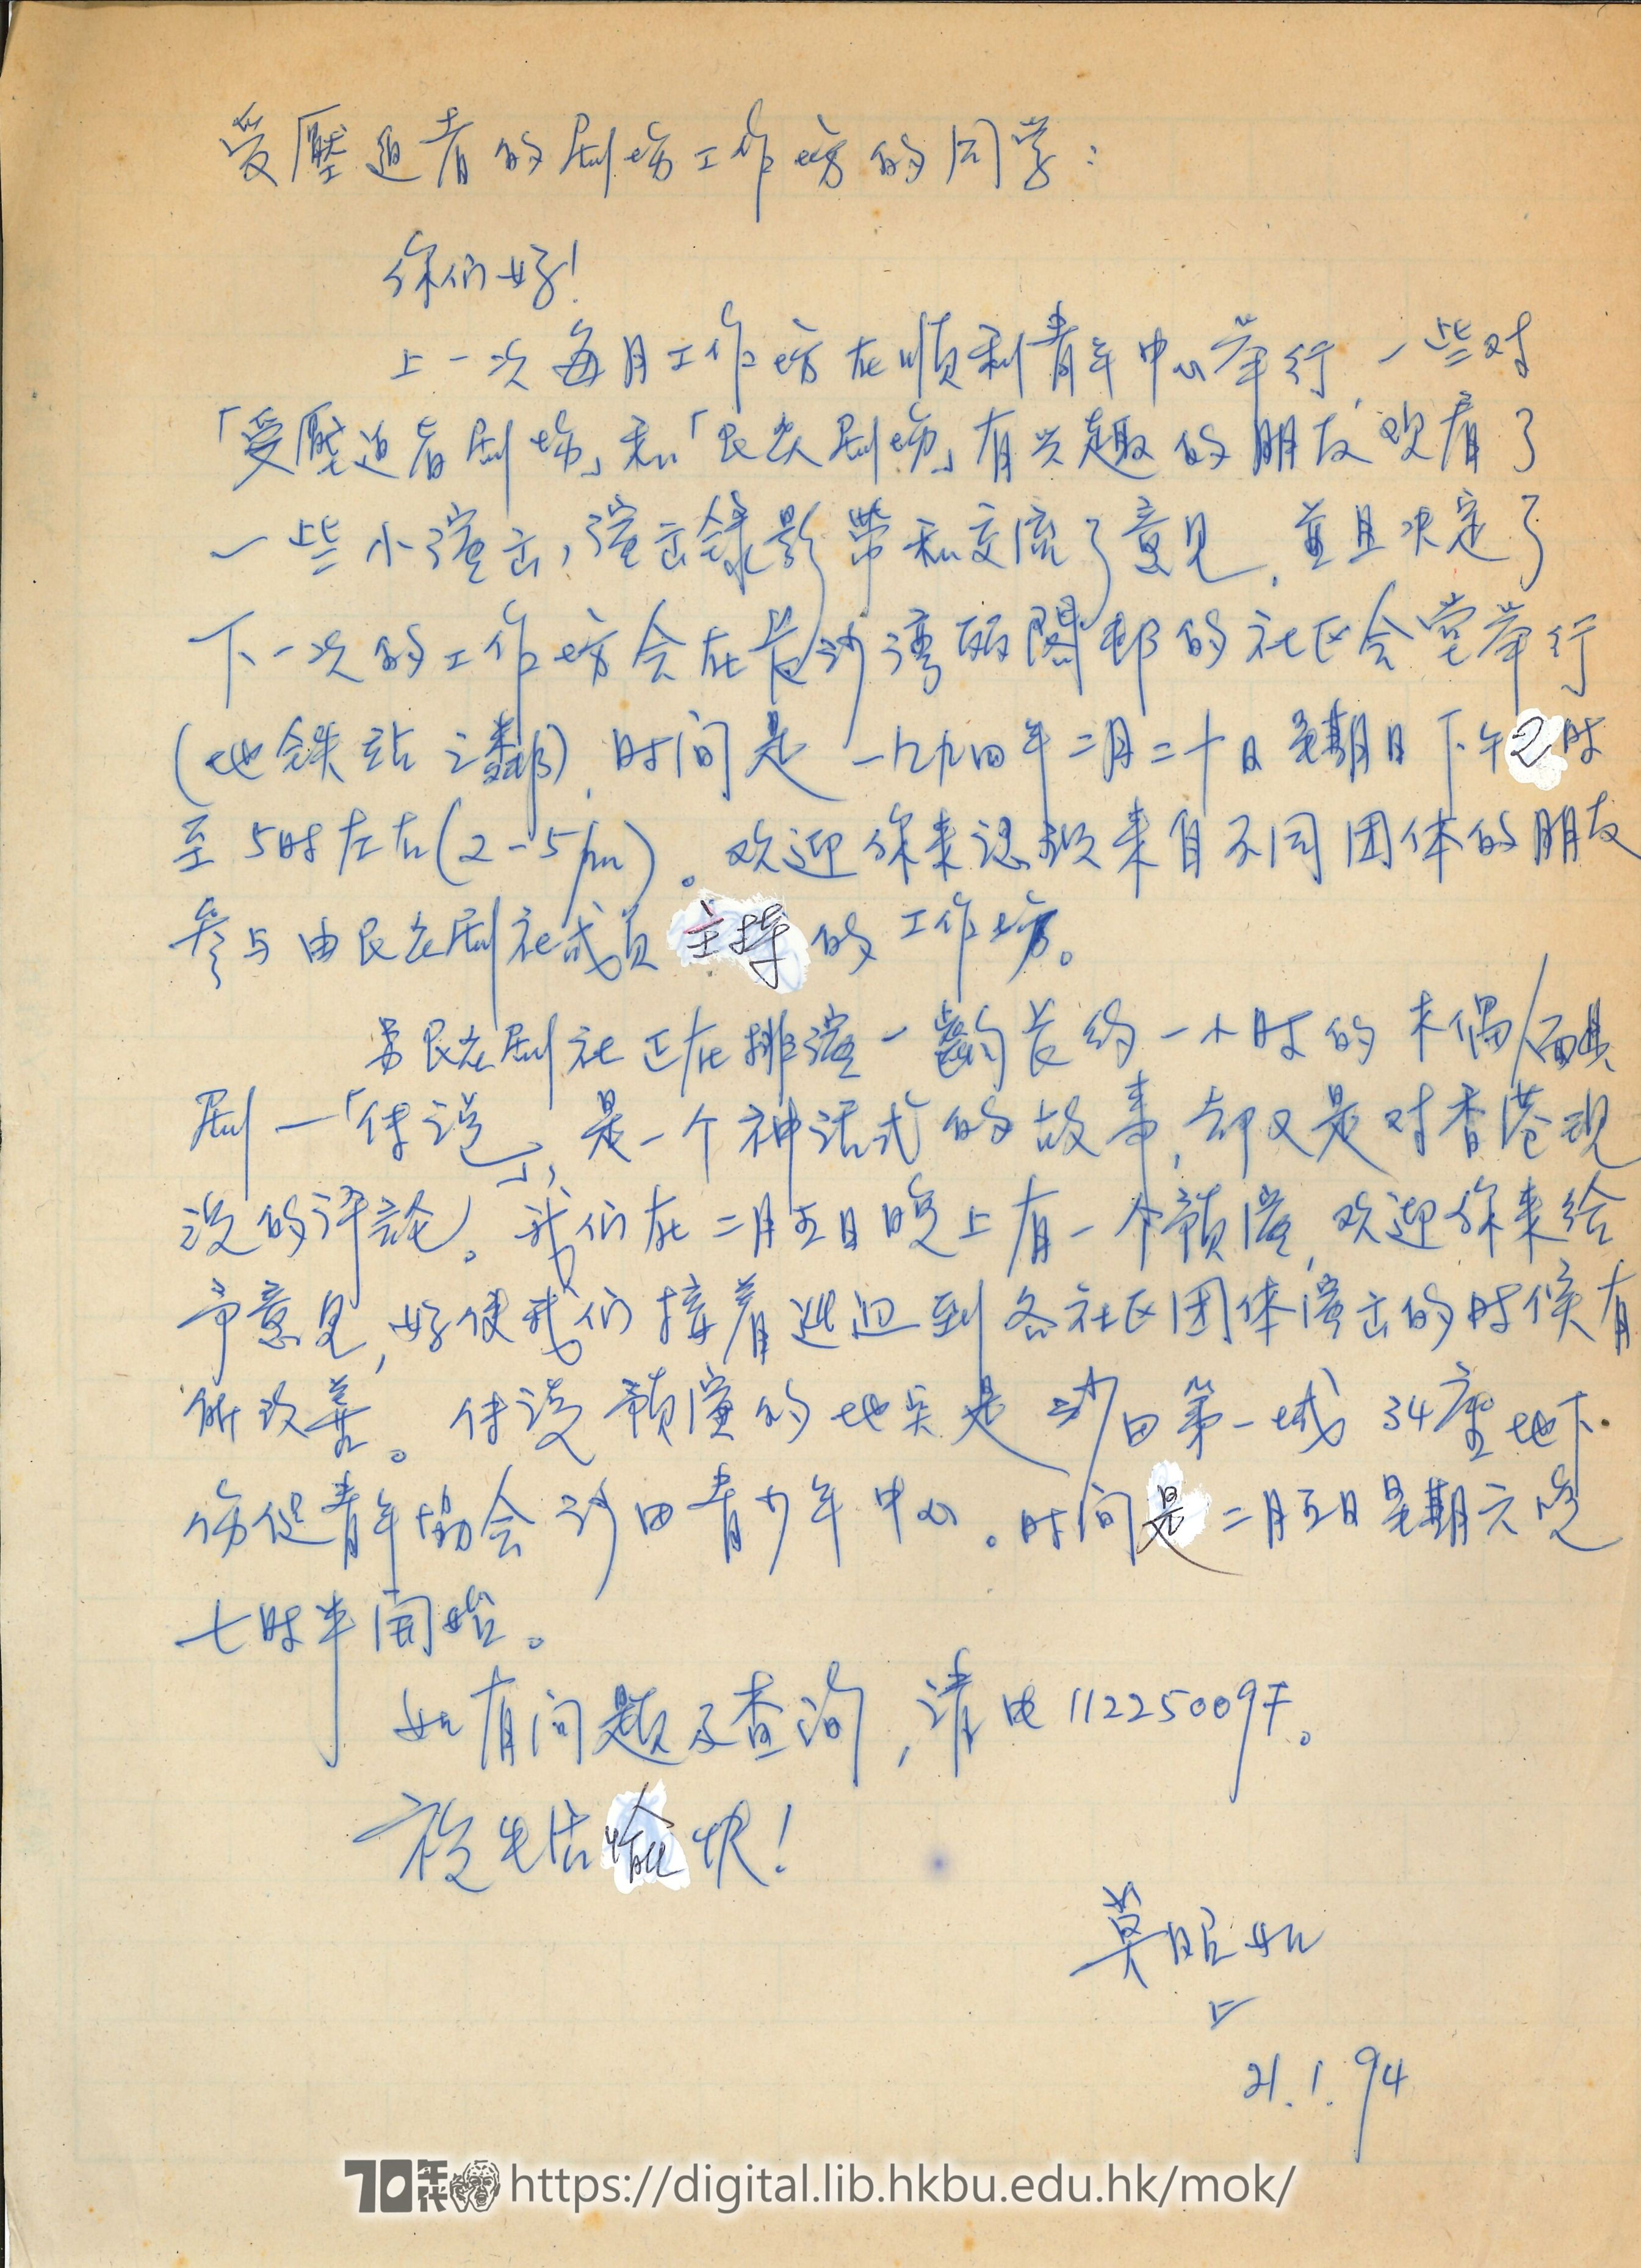 受壓迫者的剧场工作坊的同学：
你们好！
上一次每月工作坊在順利青年中心举行，一些对
「受壓迫者剧场」和「民众剧场」有兴趣的朋友观看了
一些小演出，演出録影帶和交流了意見，並且决定了
下一次的工作坊会在长沙湾丽閣邨的社区会堂举行
(地铁站之鄰)，时间是一九九四年二月二十日星期日下午2时
至5时左右(2-5pm)。欢迎你来認識来自不同团体的朋友
参与由民众剧社成員主持的工作坊。
另民众剧社正在排演一齣长约一小时的木偶/面具
剧—「传说」，是一个神话式的故事，却又是对香港现
况的评論。我们在二月五日晚上有一个預演，欢迎你来给
予意見，好使我们接着巡迴到各社区团体演出的时候有
所改善。传说預演的地点是沙田第一城34座地下.
青年協会沙田青少年中心。时间是二月五日星期六晚
七时半開始。
如有问题及查询，请电11225009
祝生活愉快！
莫昭如
上
21.1.94
70年代 https://digital.lib.hkbu.edu.hk/mok/